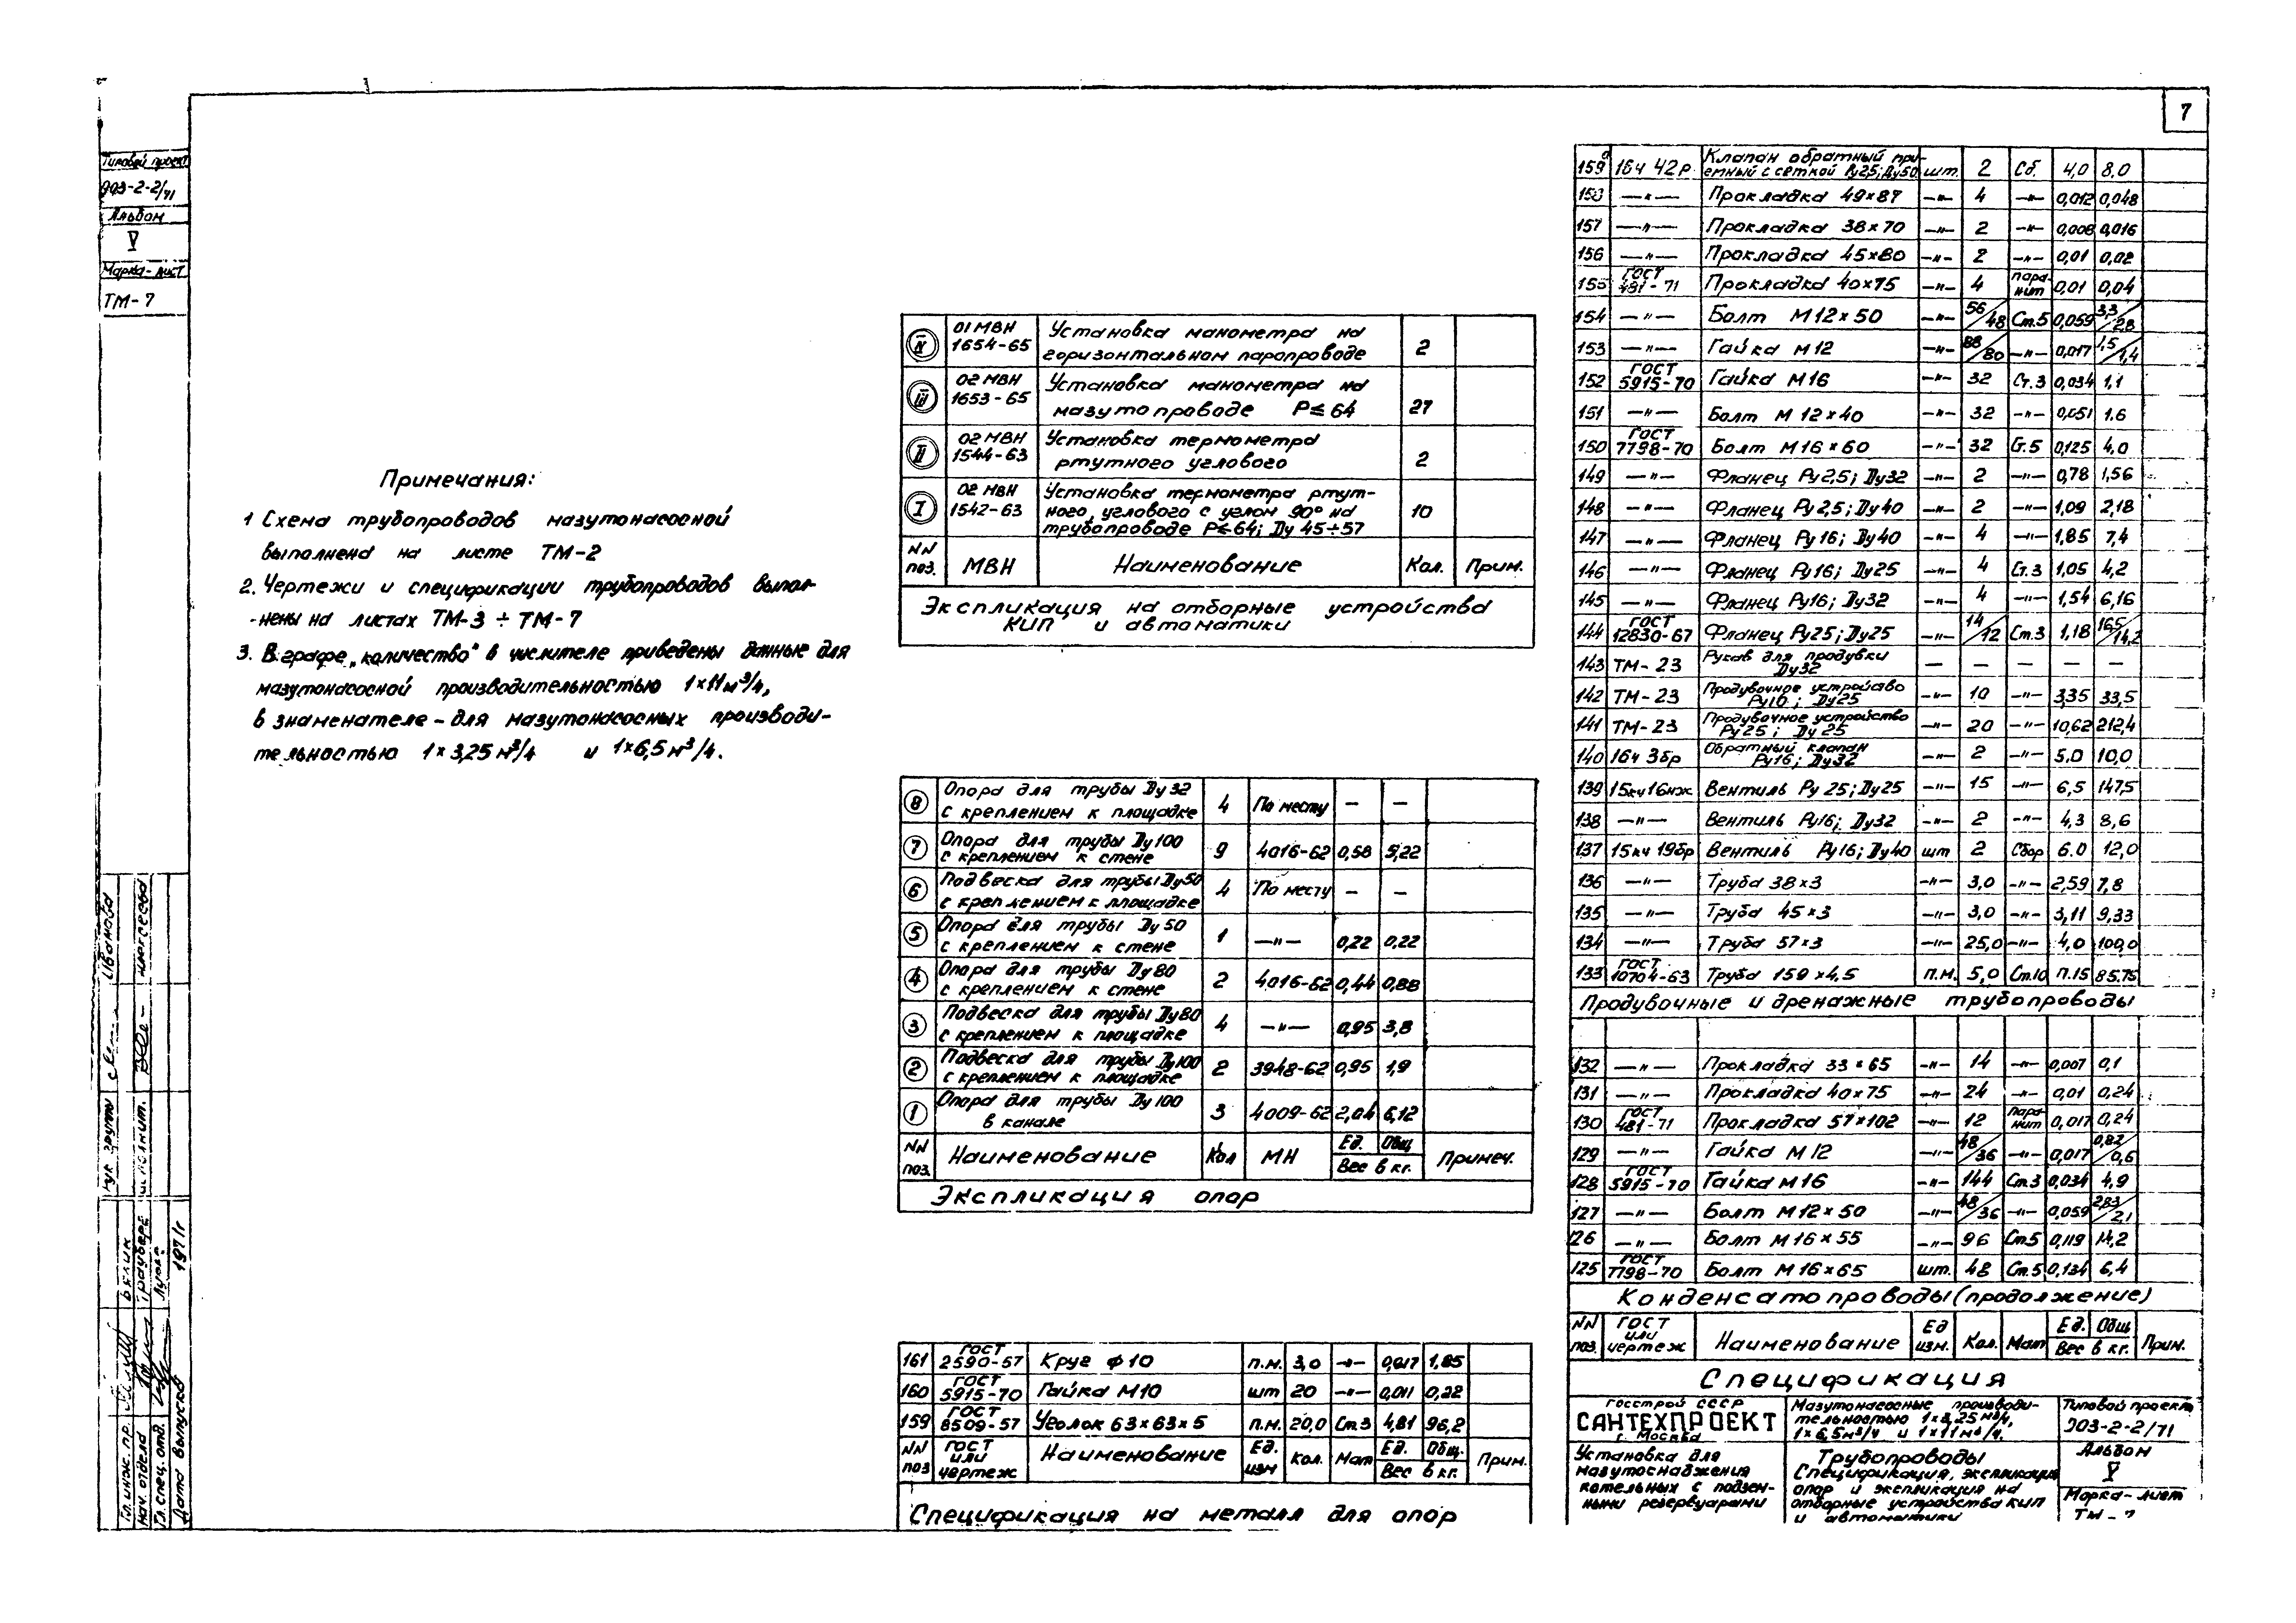 7
Типовой проект
903-2-2/71
Альбом
V
Марка-лист
ТМ-7
Примечания:
1 Схема трубопроводов мазутонасосной
выполнена на листе ТМ-2
2. Чертежи и спецификации трубопроводов выпол-
-нены на листах ТМ-3 ÷ ТМ-7
3. В графе „количество" в числителе приведены данные для
мазутонасосной производительностью 1×11м³/ч,
в знаменателе - для мазутонасосных производи-
тельностью 1×3,25 м³/ч и 1×6,5 м³/ч.
IV 01 МВН 1654-65 Установка манометра на горизонтальном паропроводе 2
III 02 МВН 1653-65 Установка манометра на мазутопроводе Р≤64 27
II 02 МВН 1544-63 Установка термометра ртутного углового 2
I 02 МВН 1542-63 Установка термометра ртут-
ного, углового с углом 90° на
трубопроводе Р≤64; Ду 45÷57 10
NN поз. МВН Наименование Кол. Прим.
Экспликация на отборные устройства
КИП и автоматики
8 Опора для трубы Ду 32 с креплением к площадке 4 По месту — —
7 Опора для трубы Ду100 с креплением к стене 9 4016-62 0,58 5,22
6 Подвеска для трубы Ду50 с креплением к площадке 4 По месту — —
5 Опора для трубы Ду 50 с креплением к стене 1 —"— 0,22 0,22
4 Опора для трубы Ду80 с креплением к стене 2 4016-62 0,44 0,88
3 Подвеска для трубы Ду80 с креплением к площадке 4 —"— 0,95 3,8
2 Подвеска для трубы Ду100 с креплением к площадке 2 3948-62 0,95 1,9
1 Опора для трубы Ду100 в канале 3 4009-62 2,04 6,12
NN поз. Наименование Кол МН Ед. Общ Вес в кг. Примеч.
Экспликация опор
161 ГОСТ 2590-57 Круг ф10 п.м. 3,0 —"— 0,617 1,85
160 ГОСТ 5915-70 Гайка М10 шт 20 —"— 0,011 0,22
159 ГОСТ 8509-57 Уголок 63×63×5 п.м. 20,0 Ст3 4,81 96,2
NN поз ГОСТ или чертеж Наименование Ед. изм Кол. Мат Ед. Общ. Вес в кг. Прим.
Спецификация на металл для опор
159а 16ч 42р Клапан обратный при-
емный с сеткой Ру25; Ду50 шт. 2 Сб. 4,0 8,0
158 —"— Прокладка 49×87 —"— 4 —"— 0,012 0,048
157 —"— Прокладка 38×70 —"— 2 —"— 0,008 0,016
156 —"— Прокладка 45×80 —"— 2 —"— 0,01 0,02
155 ГОСТ 481-71 Прокладка 40×75 —"— 4 паронит 0,01 0,04
154 —"— Болт М12×50 —"— 56/48 Ст.5 0,059 3,3/2,8
153 —"— Гайка М12 —"— 88/80 —"— 0,017 1,5/1,4
152 ГОСТ 5915-70 Гайка М16 —"— 32 Ст.3 0,034 1,1
151 —"— Болт М 12×40 —"— 32 —"— 0,051 1.6
150 ГОСТ 7798-70 Болт М16×60 —"— 32 Ст.5 0,125 4,0
149 —"— Фланец Ру2,5; Ду32 —"— 2 —"— 0,78 1,56
148 —"— Фланец Ру2,5; Ду40 —"— 2 —"— 1,09 2,18
147 —"— Фланец Ру16; Ду40 —"— 4 —"— 1,85 7,4
146 —"— Фланец Ру16; Ду25 —"— 4 Ст.3 1,05 4,2
145 —"— Фланец Ру16; Ду32 —"— 4 —"— 1,54 6,16
144 ГОСТ 12830-67 Фланец Ру25; Ду25 —"— 14/12 Ст.3 1,18 16,5/14,2
143 ТМ-23 Рукав для продувки Ду32 — — — — —
142 ТМ-23 Продувочное устройство Ру16; Ду25 —"— 10 —"— 3,35 33,5
141 ТМ-23 Продувочное устройство Ру25; Ду 25 —"— 20 —"— 10,62 212,4
140 16ч 3бр Обратный клапан Ру16; Ду32 —"— 2 —"— 5,0 10,0
139 15кч16нж Вентиль Ру 25; Ду25 —"— 15 —"— 6,5 147,5
138 —"— Вентиль Ру16; Ду32 —"— 2 —"— 4,3 8,6
137 15кч 19бр Вентиль Ру16; Ду40 шт 2 Сбор 6.0 12,0
136 —"— Труба 38×3 —"— 3,0 —"— 2,59 7,8
135 —"— Труба 45×3 —"— 3,0 —"— 3,11 9,33
134 —"— Труба 57×3 —"— 25,0 —"— 4,0 100,0
133 ГОСТ 10704-63 Труба 159×4,5 п.м. 5,0 Ст.10 17.15 85.75
Продувочные и дренажные трубопроводы
132 —"— Прокладка 33×65 —"— 14 —"— 0,007 0,1
131 —"— Прокладка 40×75 —"— 24 —"— 0,01 0,24
130 ГОСТ 481-71 Прокладка 57×102 —"— 12 паронит 0,017 0,24
129 —"— Гайка М12 —"— 48/36 —"— 0,017 0,82/0,6
128 ГОСТ 5915-70 Гайка М16 —"— 144 Ст3 0,034 4,9
127 —"— Болт М12×50 —"— 48/36 —"— 0,059 2,83/2,1
126 —"— Болт М16×55 —"— 96 Ст5 0,119 11,2
125 ГОСТ 7798-70 Болт М16×65 шт. 48 Ст.5 0,134 6,4
Конденсатопроводы (продолжение)
NN поз. ГОСТ или чертеж Наименование Ед изм. Кол. Мат Ед. Общ Вес в кг. Прим.
Спецификация
Госстрой СССР
САНТЕХПРОЕКТ
г. Москва
Мазутонасосные производи-
тельностью 1×3,25 м³/ч,
1×6,5м³/ч и 1×11м³/ч.
Типовой проект
903-2-2/71
Установка для
мазутоснабжения
котельных с подзем-
ными резервуарами
Трубопроводы
Спецификация, экспликация
опор и экспликация на
отборные устройства КИП
и автоматики
Альбом
V
Марка-лист
ТМ-7
Гл. инж. пр. Бялик
Нач. отдела
Гл. спец. отд.
Дата выпуска 1971г
Рук. группы Иванова
Исполнит.